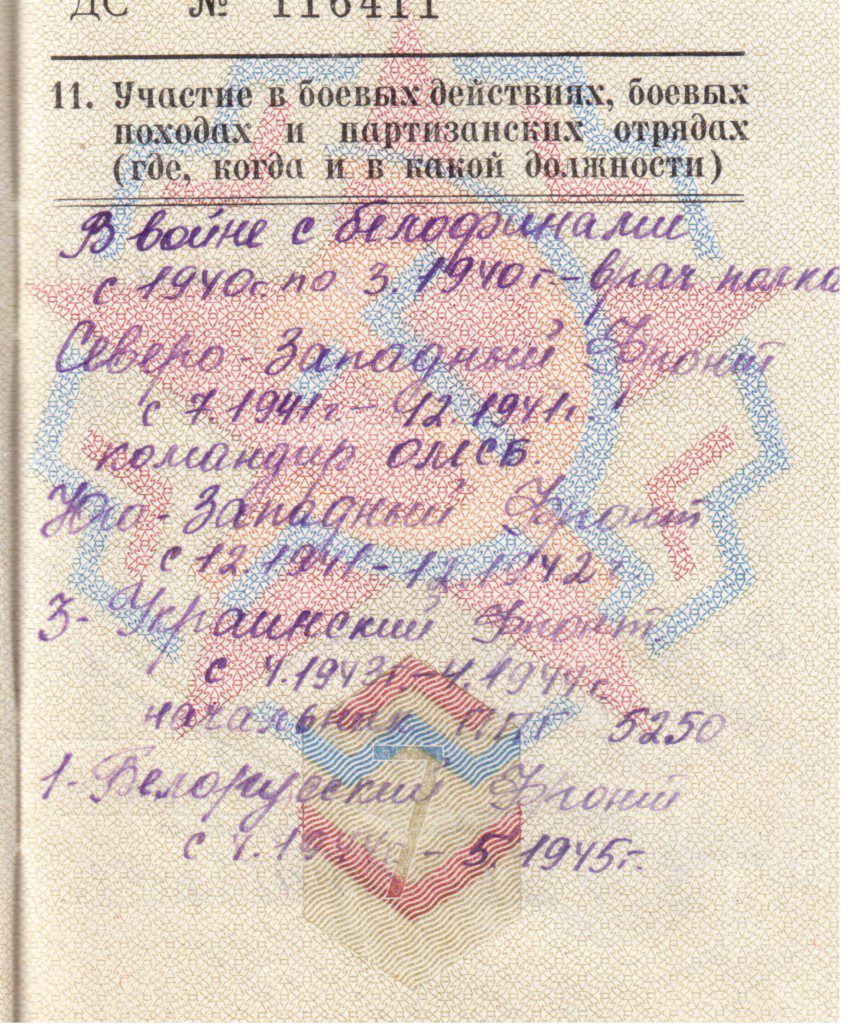 ДС № 116411
11. Участие в боевых действиях, боевых
походах и партизанских отрядах
(где, когда и в какой должности)
В войне с белофинами
с 1940г. по 3.1940г. - врач полка
Северо-Западный Фронт
с 7.1941г. - 12.1941г.
командир ОМСБ.
Юго-Западный Фронт
с 12.1941 - 12.1942г.
3-Украинский Фронт
с 4.1943г. - 4.1944г.
начальник 5250
1-Белорусский Фронт
с 4.1944г. - 5.1945г.